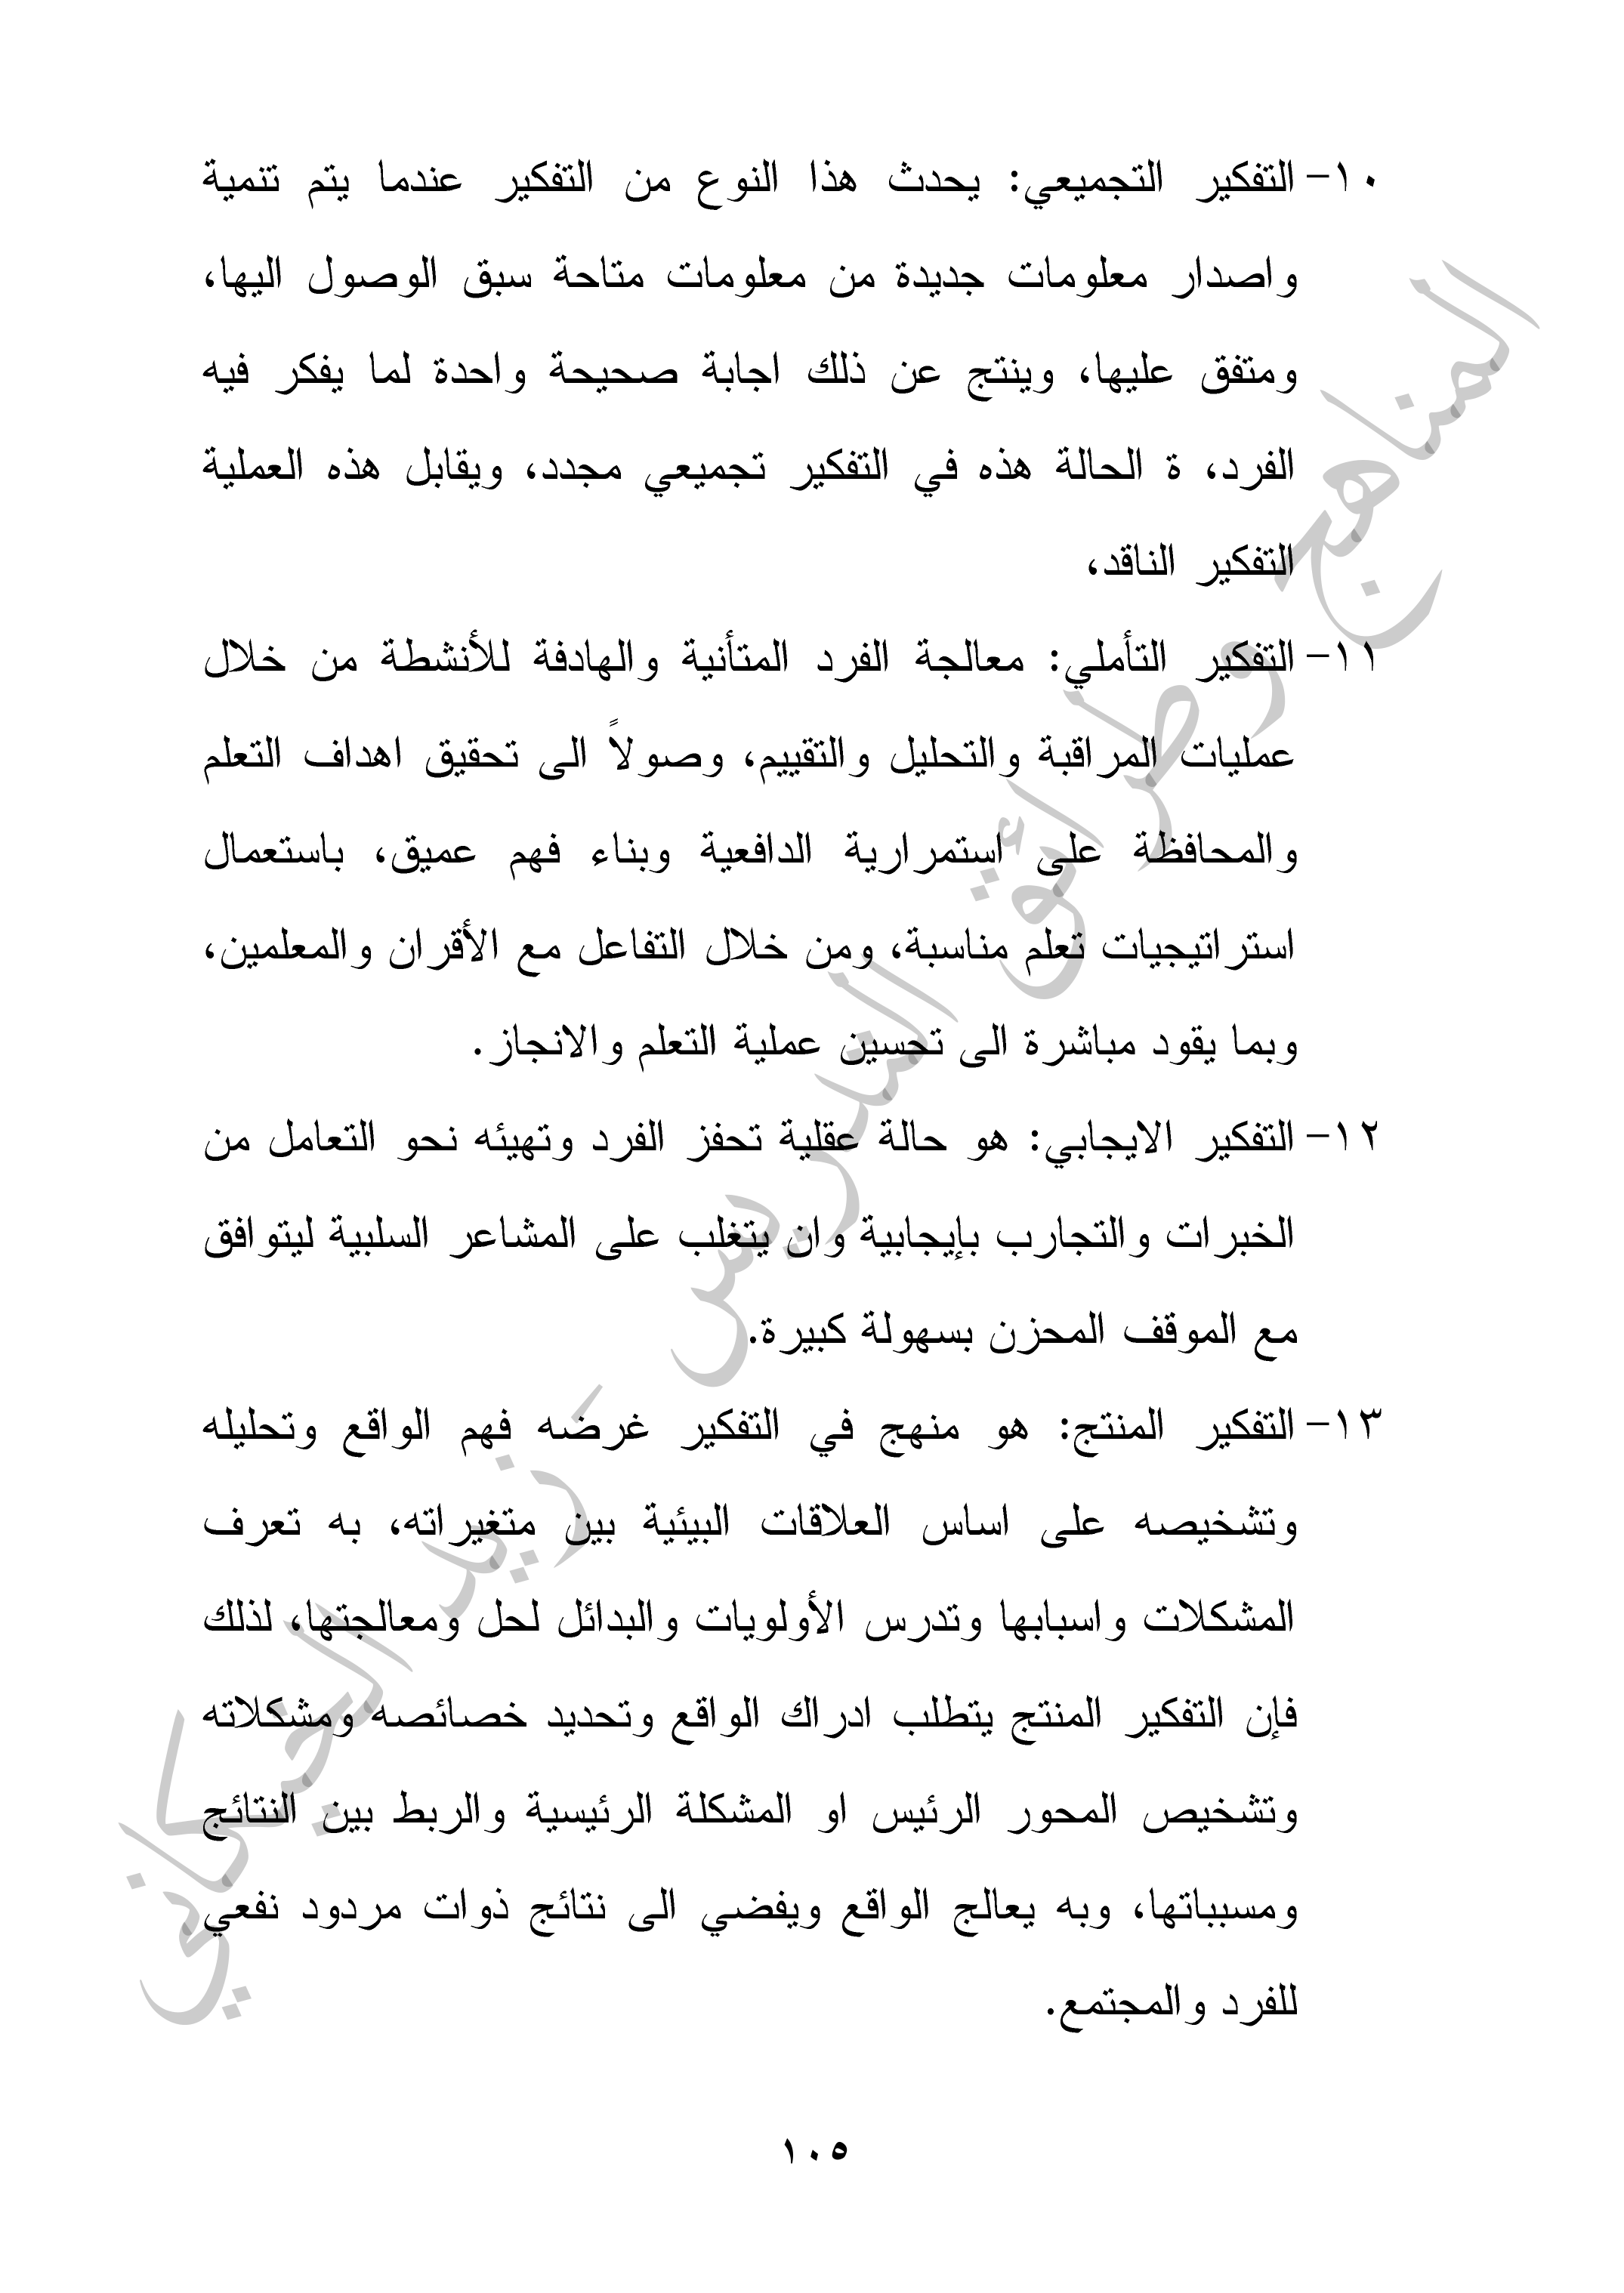 ١٠- التفكير التجميعي: يحدث هذا النوع من التفكير عندما يتم تنمية
واصدار معلومات جديدة من معلومات متاحة سبق الوصول اليها،
ومتفق عليها، وينتج عن ذلك اجابة صحيحة واحدة لما يفكر فيه
الفرد، ة الحالة هذه في التفكير تجميعي مجدد، ويقابل هذه العملية
التفكير الناقد،
١١- التفكير التأملي: معالجة الفرد المتأنية والهادفة للأنشطة من خلال
عمليات المراقبة والتحليل والتقييم، وصولاً الى تحقيق اهداف التعلم
والمحافظة على استمرارية الدافعية وبناء فهم عميق، باستعمال
استراتيجيات تعلم مناسبة، ومن خلال التفاعل مع الأقران والمعلمين،
وبما يقود مباشرة الى تحسين عملية التعلم والانجاز.
١٢- التفكير الايجابي: هو حالة عقلية تحفز الفرد وتهيئه نحو التعامل من
الخبرات والتجارب بإيجابية وان يتغلب على المشاعر السلبية ليتوافق
مع الموقف المحزن بسهولة كبيرة.
١٣- التفكير المنتج: هو منهج في التفكير غرضه فهم الواقع وتحليله
وتشخيصه على اساس العلاقات البيئية بين متغيراته، به تعرف
المشكلات واسبابها وتدرس الأولويات والبدائل لحل ومعالجتها، لذلك
فإن التفكير المنتج يتطلب ادراك الواقع وتحديد خصائصه ومشكلاته
وتشخيص المحور الرئيس او المشكلة الرئيسية والربط بين النتائج
ومسبباتها، وبه يعالج الواقع ويفضي الى نتائج ذوات مردود نفعي
للفرد والمجتمع.
المناهج وطرائق التدريس - زيد الخيكاني
١٠٥